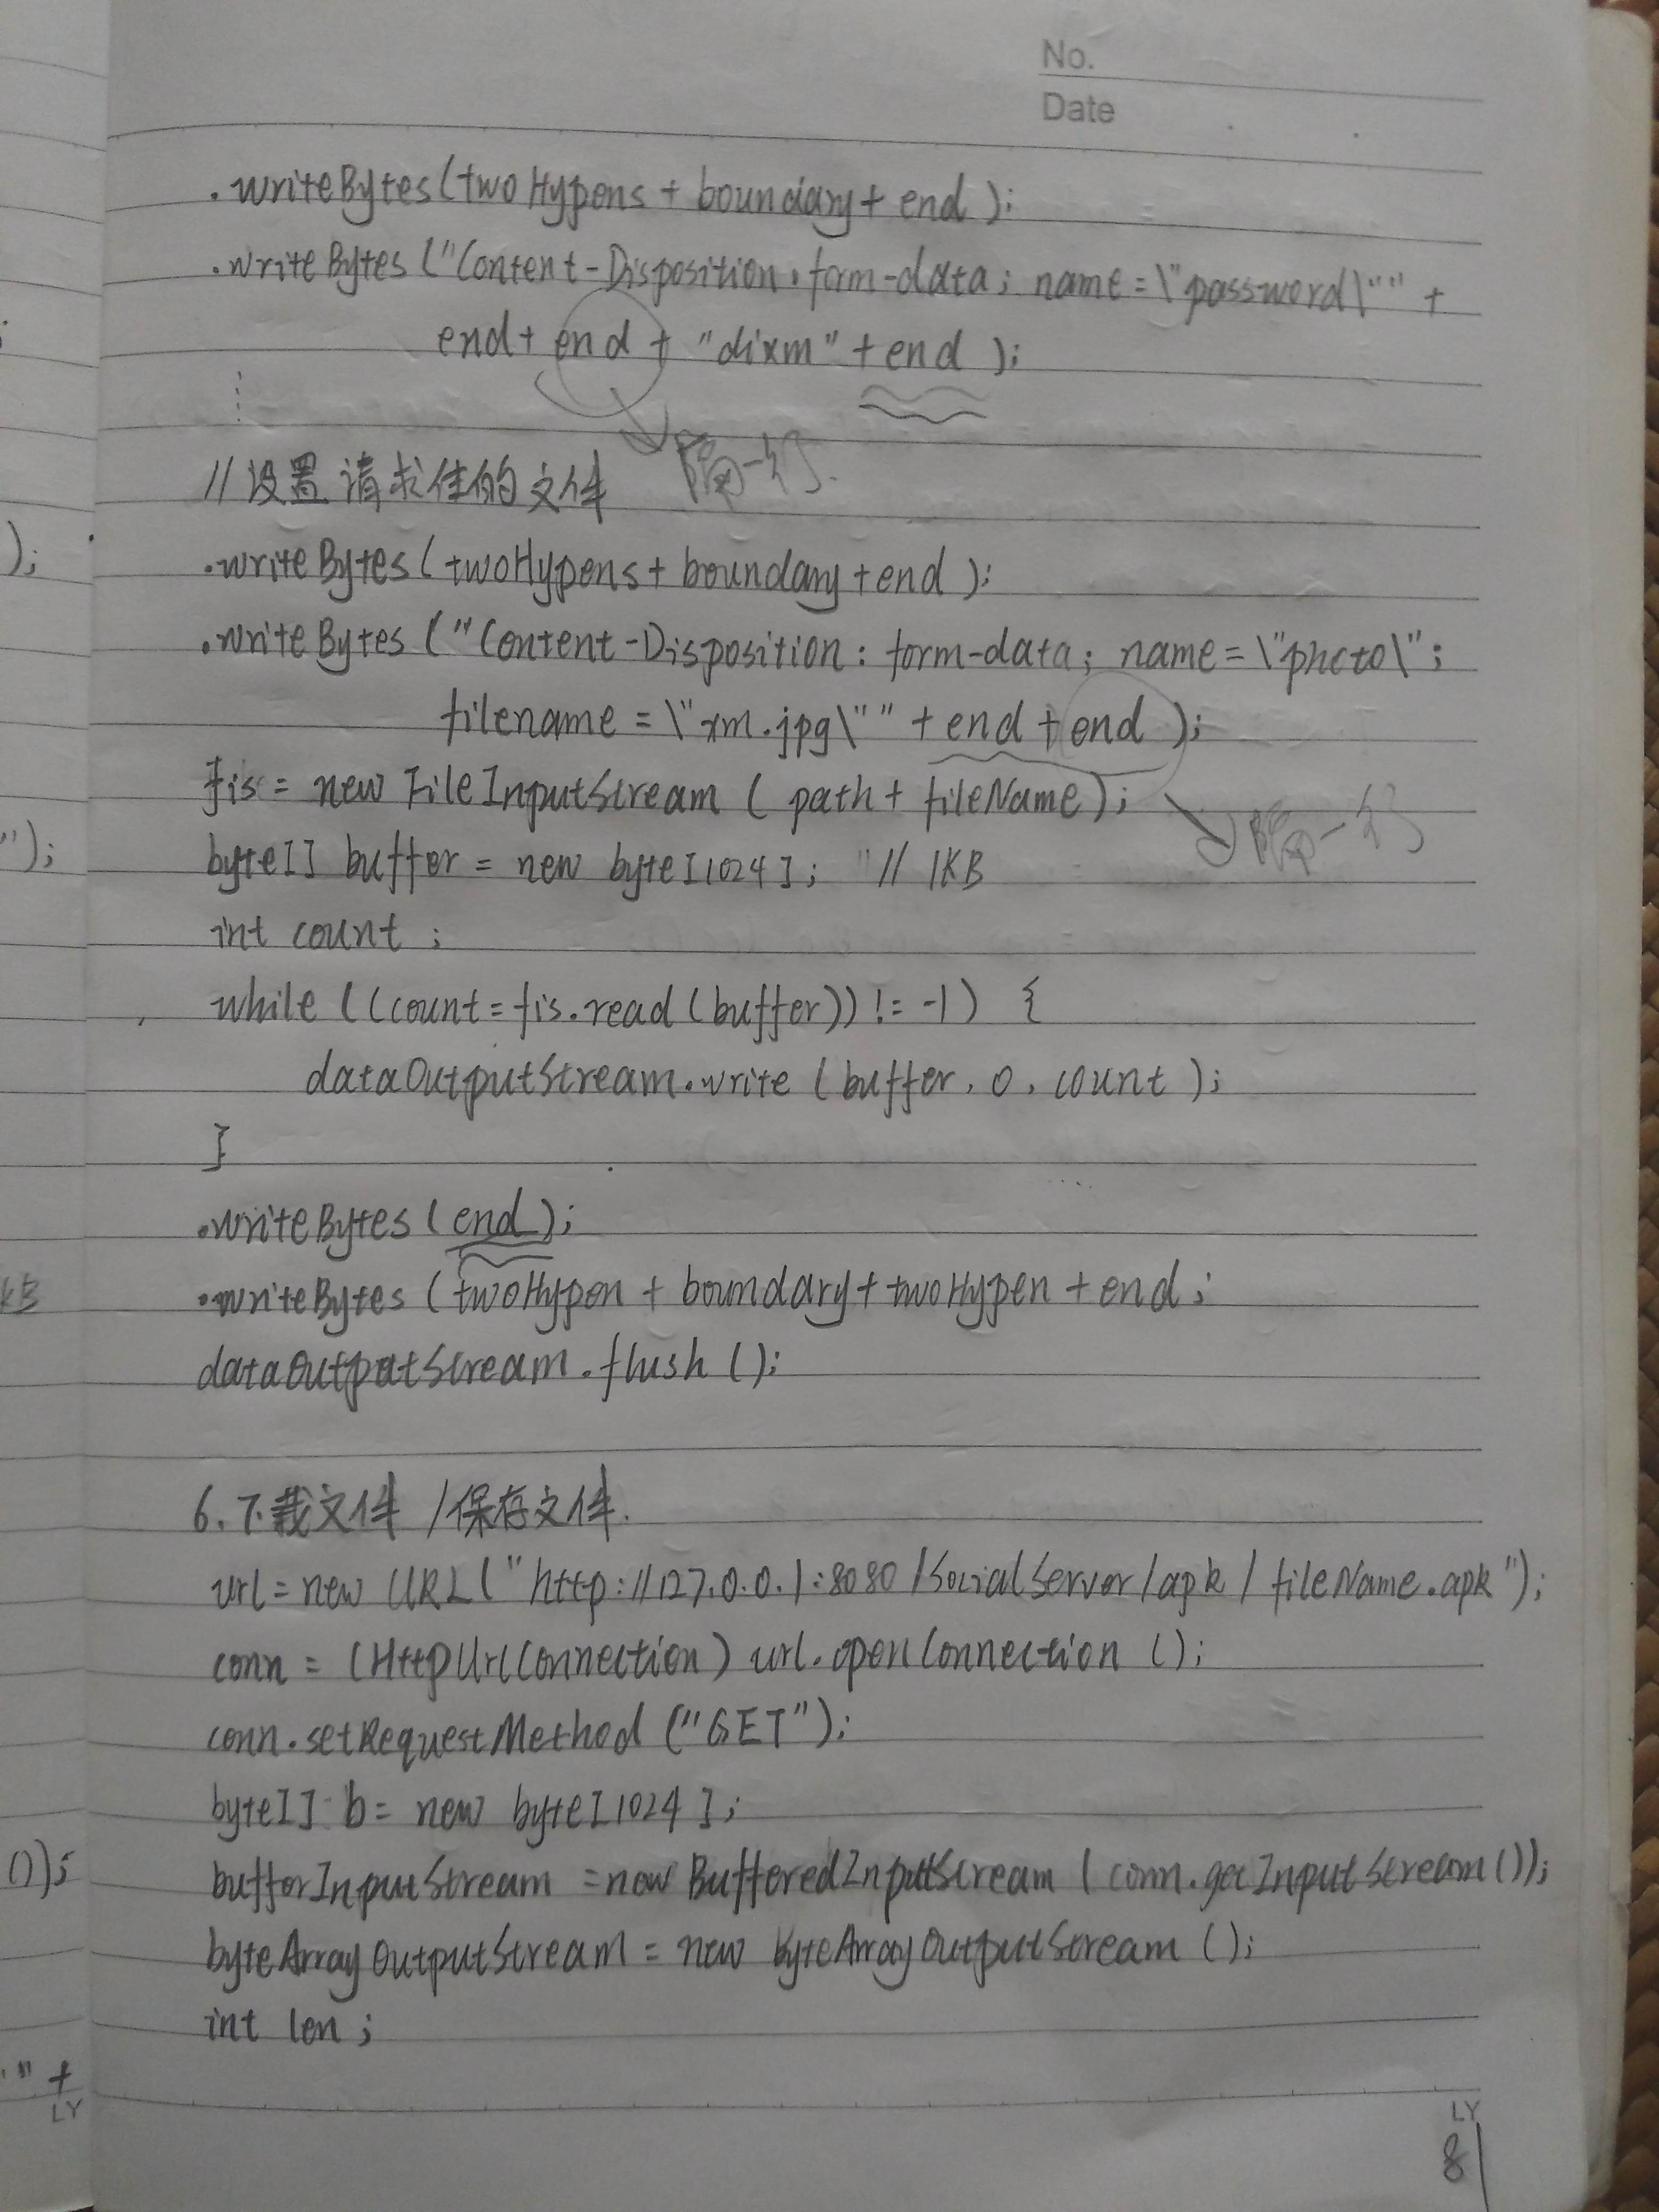 No.
Date
.writeBytes(twoHypens + boundary + end );
.writeBytes ("Content-Disposition: form-data; name=\"password\"" +
end + end + "dixm" + end );
隔一行.
// 设置请求体的文件
.writeBytes (twoHypens + boundary + end );
.writeBytes ("Content-Disposition: form-data; name=\"photo\";
filename=\"xm.jpg\"" + end + end );
fis = new FileInputStream ( path + fileName);
隔一行
byte[] buffer = new byte[1024]; // 1KB
int count ;
while ((count=fis.read(buffer)) != -1) {
dataOutputStream.write (buffer, 0, count );
}
.writeBytes (end);
.writeBytes (twoHypen + boundary + twoHypen + end;
dataOutputStream.flush ();
6.下载文件 /保存文件.
url=new URL("http://127.0.0.1:8080/SocialServer/apk/fileName.apk");
conn = (HttpUrlConnection) url.openConnection ();
conn.setRequestMethod ("GET");
byte[] b = new byte[1024];
bufferInputStream = new BufferedInputStream (conn.getInputStream());
byteArrayOutputStream = new ByteArrayOutputStream ();
int len ;
LY
8
);
");
KB
());
" +
LY